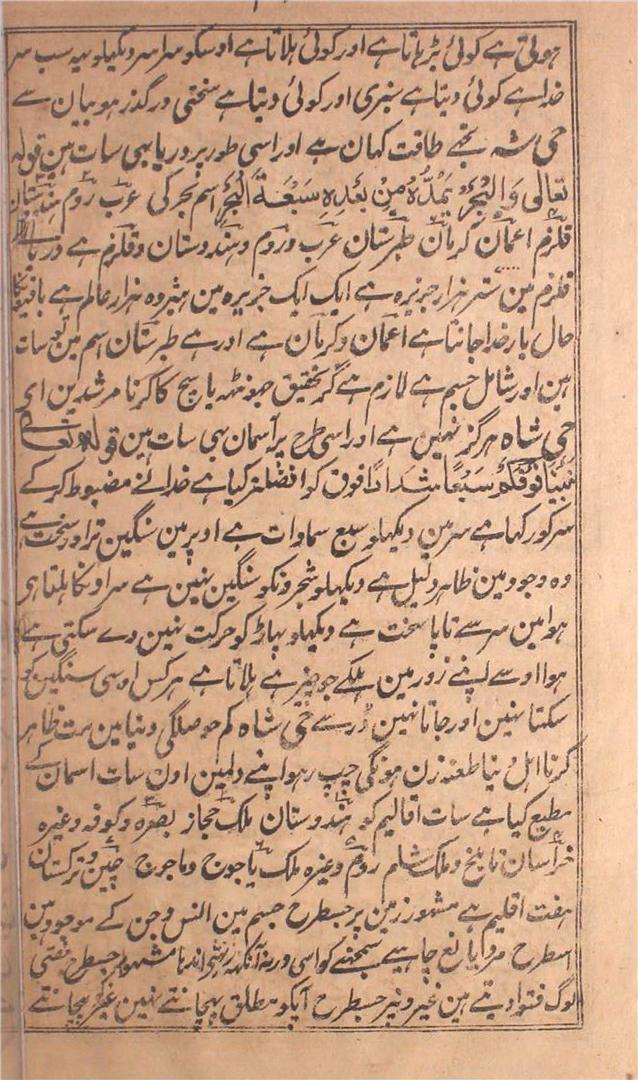 ہوتی ہے کوئی بڑہاتا ہے اور کوئی ہلاتا ہے اوسکو سراسر دیکہلو یہ سب سر
خدا ہے کوئی دیتا ہے سبزی اور کوئی دیتا ہے سختی درگذر ہو بیان سے
حی شہ تجھے طاقت کہان ہے اور اسی طور پر دریا بہی سات ہین قولہ
تعالی وَالبَحْرُ یَمُدُّہُ مِنْ بَعْدِہٖ سَبْعَۃُ اَبْحُرٍ اسم بحر کی عرب روم ہندستان
قلزم اعمان کرمان طبرستان عرب و روم و ہندوستان و قلزم ہے دریائے
قلزم مین ستر ہزار جزیرہ ہے ایک ایک جزیرہ مین ہژدہ ہزار عالم ہے باقی
حال بار خدا جانتا ہے اعمان و کرمان ہے اور ہے طبرستان اسم مین لو سات
ہین اور شامل جسم ہے لازم ہے گر تحقیق جہونٹہ یا سچ کا کرنا مرشد بن ای
حی شاہ ہرگز نہین ہے اور اسی طرح پر آسمان بہی سات ہین قولہ تعالی
بَنَیْنَا فَوْقَکُمْ سَبْعًا شِدَادًا فوق کو افضلتر کیا ہے خدا نے مضبوط کر کے
سر کو رکہا ہے سر مین دیکہلو سبع سماوات ہے اوپر مین سنگین تر اور سخت ہے
وہ وجود مین ظاہر دلیل ہے دیکہلو شجر و نکو سنگین نہین ہے سر اونکا ہلتا ہی
ہوا مین سر سے تا پا سخت ہے دیکہلو پہاڑ کو حرکت نہین دے سکتی ہے
ہوا اوسے اپنے زور مین ہلکے جو چیز ہے ہلاتا ہے ہر کس اوسی سنگین کو
سکتا نہین اور جاتا نہین ڈر سے حی شاہ کم حوصلگی دنیا مین مت ظاہر
کرنا اہل دنیا طعنہ زن ہونگی چپ رہو اپنے دلمین اون سات اسمان کے
مطیع کیا ہے سات اقالیم کو ہندوستان ملک حجاز بصرہ و کوفہ وغیرہ
خراسان تا بلخ و ملک شام روم وغیرہ ملک یاجوج و ماجوج چین و ترکستان
ہفت اقلیم ہے مشہور زمین پر جسطرح جسم مین انس و جن کے موجود ہین
اسطرح مرد بالغ چاہیے سمجہنے کو اسی ورنہ آنکہہ مشہور جسطرح مفتی
لوگ فتوا دیتے ہین غیر و نپر جسطرح آپکو مطلق پہچانتے نہین غیر کو پہچانتے